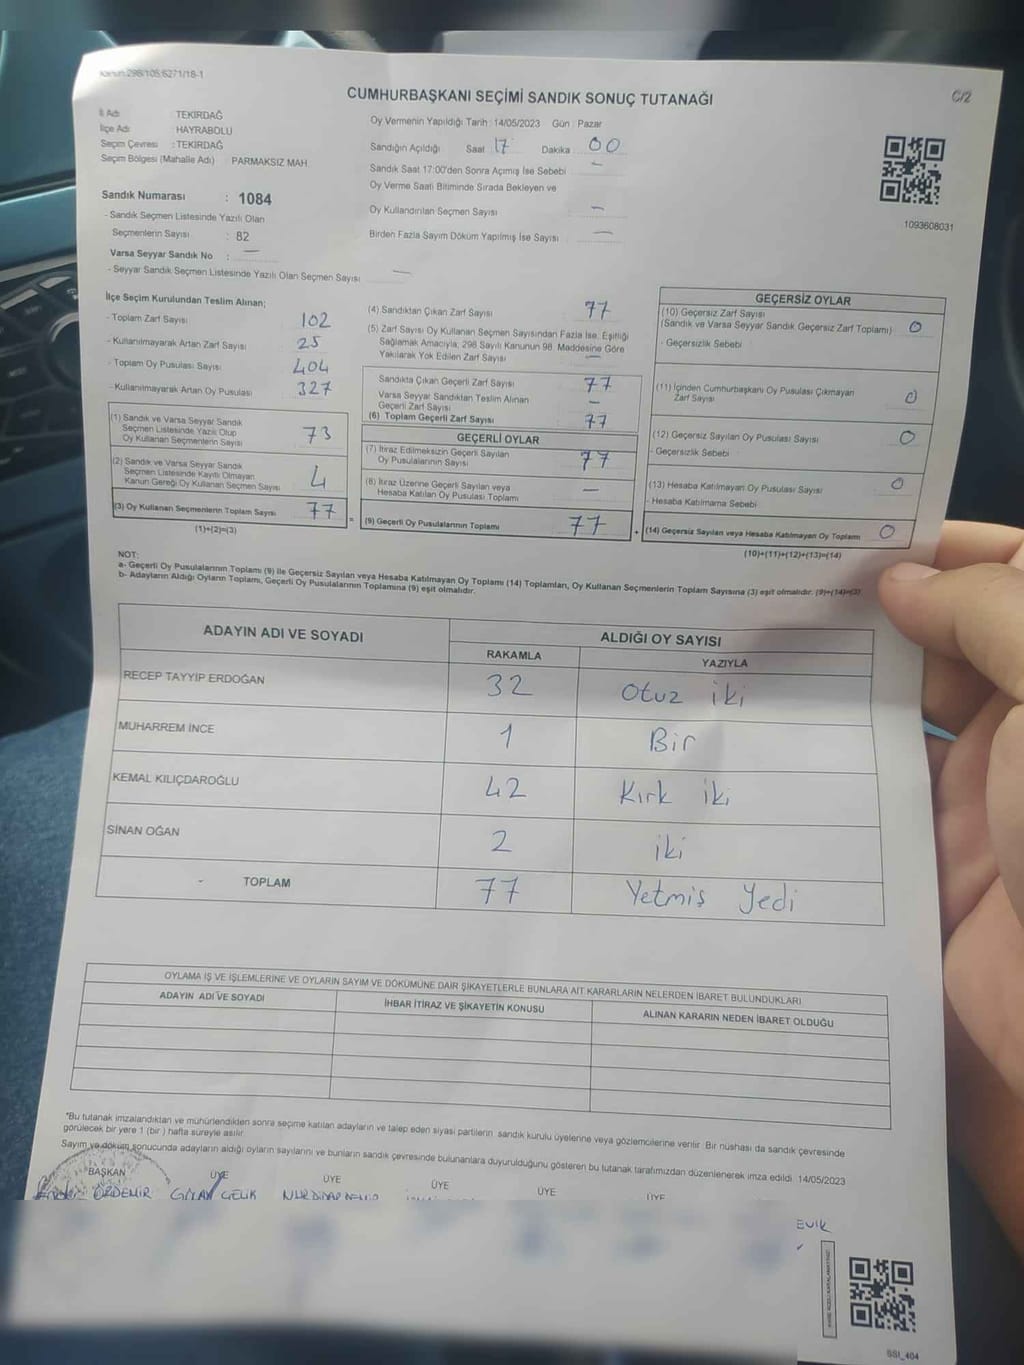 Kanun:298/105;6271/18-1
C/2
CUMHURBAŞKANI SEÇİMİ SANDIK SONUÇ TUTANAĞI
İl Adı : TEKİRDAĞ
İlçe Adı : HAYRABOLU
Seçim Çevresi : TEKİRDAĞ
Seçim Bölgesi (Mahalle Adı) : PARMAKSIZ MAH
Sandık Numarası : 1084
- Sandık Seçmen Listesinde Yazılı Olan
Seçmenlerin Sayısı : 82
Varsa Seyyar Sandık No : —
- Seyyar Sandık Seçmen Listesinde Yazılı Olan Seçmen Sayısı —
Oy Vermenin Yapıldığı Tarih : 14/05/2023 Gün : Pazar
Sandığın Açıldığı Saat 17 Dakika 00
Sandık Saat 17:00'den Sonra Açımış İse Sebebi —
Oy Verme Saati Bitiminde Sırada Bekleyen ve
Oy Kullandırılan Seçmen Sayısı —
Birden Fazla Sayım Döküm Yapılmış İse Sayısı —
1093608031
İlçe Seçim Kurulundan Teslim Alınan;
- Toplam Zarf Sayısı 102
- Kullanılmayarak Artan Zarf Sayısı 25
- Toplam Oy Pusulası Sayısı 404
- Kullanılmayarak Artan Oy Pusulası 327
(1) Sandık ve Varsa Seyyar Sandık
Seçmen Listesinde Yazılı Olup
Oy Kullanan Seçmenlerin Sayısı 73
(2) Sandık ve Varsa Seyyar Sandık
Seçmen Listesinde Kayıtlı Olmayan
Kanun Gereği Oy Kullanan Seçmen Sayısı 4
(3) Oy Kullanan Seçmenlerin Toplam Sayısı 77
(1)+(2)=(3)
(4) Sandıktan Çıkan Zarf Sayısı 77
(5) Zarf Sayısı Oy Kullanan Seçmen Sayısından Fazla İse, Eşitliği
Sağlamak Amacıyla; 298 Sayılı Kanunun 98. Maddesine Göre
Yakılarak Yok Edilen Zarf Sayısı —
Sandıkta Çıkan Geçerli Zarf Sayısı 77
Varsa Seyyar Sandıktan Teslim Alınan
Geçerli Zarf Sayısı —
(6) Toplam Geçerli Zarf Sayısı 77
GEÇERLİ OYLAR
(7) İtiraz Edilmeksizin Geçerli Sayılan
Oy Pusulalarının Sayısı 77
(8) İtiraz Üzerine Geçerli Sayılan veya
Hesaba Katılan Oy Pusulası Toplamı —
= (9) Geçerli Oy Pusulalarının Toplamı 77 +
GEÇERSİZ OYLAR
(10) Geçersiz Zarf Sayısı
(Sandık ve Varsa Seyyar Sandık Geçersiz Zarf Toplamı) 0
- Geçersizlik Sebebi
(11) İçinden Cumhurbaşkanı Oy Pusulası Çıkmayan
Zarf Sayısı 0
(12) Geçersiz Sayılan Oy Pusulası Sayısı 0
- Geçersizlik Sebebi
(13) Hesaba Katılmayan Oy Pusulası Sayısı 0
- Hesaba Katılmama Sebebi
(14) Geçersiz Sayılan veya Hesaba Katılmayan Oy Toplamı 0
(10)+(11)+(12)+(13)=(14)
NOT:
a- Geçerli Oy Pusulalarının Toplamı (9) ile Geçersiz Sayılan veya Hesaba Katılmayan Oy Toplamı (14) Toplamları, Oy Kullanan Seçmenlerin Toplam Sayısına (3) eşit olmalıdır. (9)+(14)=(3)
b- Adayların Aldığı Oyların Toplamı, Geçerli Oy Pusulalarının Toplamına (9) eşit olmalıdır.
ADAYIN ADI VE SOYADI
ALDIĞI OY SAYISI
RAKAMLA YAZIYLA
RECEP TAYYİP ERDOĞAN 32 Otuz iki
MUHARREM İNCE 1 Bir
KEMAL KILIÇDAROĞLU 42 Kırk iki
SİNAN OĞAN 2 iki
- TOPLAM 77 Yetmiş Yedi
OYLAMA İŞ VE İŞLEMLERİNE VE OYLARIN SAYIM VE DÖKÜMÜNE DAİR ŞİKAYETLERLE BUNLARA AİT KARARLARIN NELERDEN İBARET BULUNDUKLARI
ADAYIN ADI VE SOYADI İHBAR İTİRAZ VE ŞİKAYETİN KONUSU ALINAN KARARIN NEDEN İBARET OLDUĞU
*Bu tutanak imzalandıktan ve mühürlendikten sonra seçime katılan adayların ve talep eden siyasi partilerin sandık kurulu üyelerine veya gözlemcilerine verilir. Bir nüshası da sandık çevresinde
görülecek bir yere 1 (bir ) hafta süreyle asılır.
Sayım ve döküm sonucunda adayların aldığı oyların sayılarını ve bunların sandık çevresinde bulunanlara duyurulduğunu gösteren bu tutanak tarafımızdan düzenlenerek imza edildi. 14/05/2023
BAŞKAN ÜYE ÜYE ÜYE ÜYE ÜYE
ÖZDEMİR ÇELİK
SSI_404